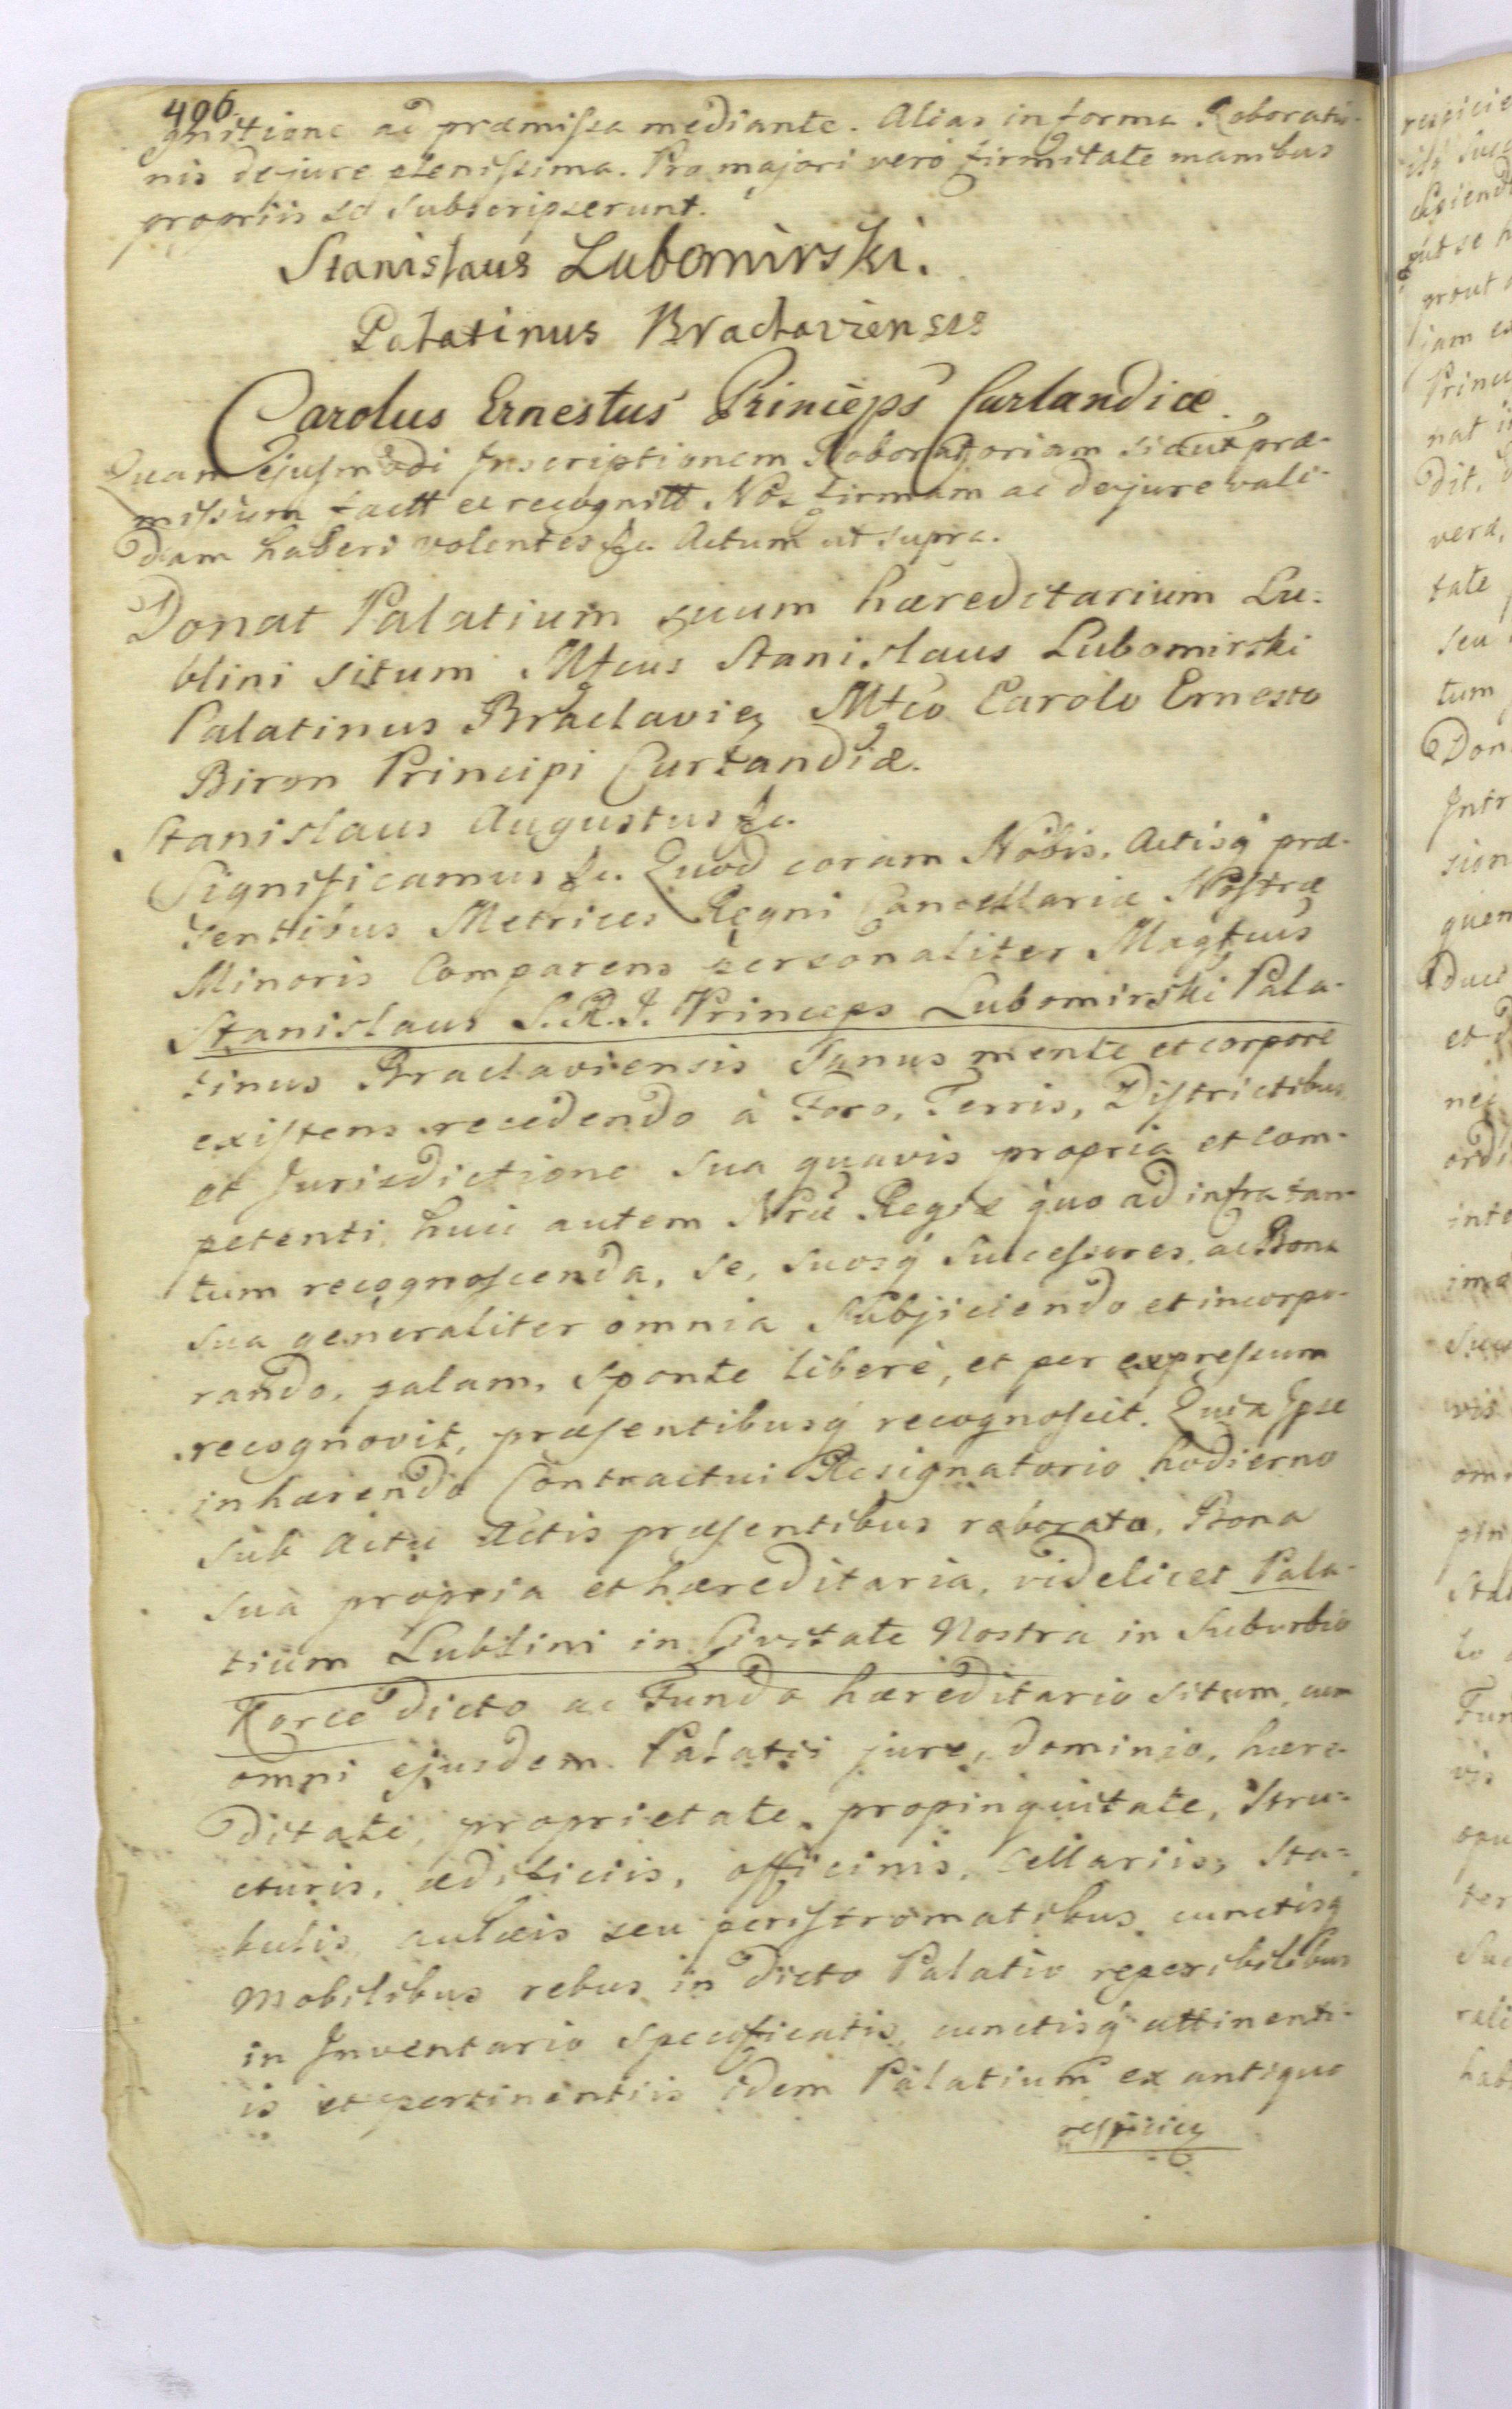 406
gnitione ad præmissa mediante. Alias in forma Roboratio-
nis de jure plenissima. Pro majori vero firmitate manibus
propriis se subscripserunt.
Stanislaus Lubomirski.
Palatinus Braclaviensis
Carolus Ernestus Princeps Curlandiæ.
Quam ejusmodi Inscriptionem Roboratoriam sicut præ-
missum factt et recognitt Nos firmam ac de jure vali-
dam haberi volentes &c. Actum ut supra.
Donat Palatium suum hæreditarium Lu-
blini situm Mfcus Stanislaus Lubomirski
Palatinus Braclavien Mfco Carolo Ernesto
Biron Principi Curlandiæ.
Stanislaus Augustus &c.
Significamus &c. Quod coram Nobis, Actisq præ-
sentibus Metrices Regni Cancellariæ Nostræ
Minoris Comparens personaliter Magfcus
Stanislaus S.R.I. Princeps Lubomirski Pala-
tinus Braclaviensis Sanus mente et corpore
existens recedendo à Foro, Terris, Districtibus
et Jurisdictione sua quavis propria et com-
petenti, huic autem Nræ Regiæ quo ad infra tan-
tum recognoscenda, se, suosq Successores, ac Bona
sua generaliter omnia Subjiciendo et incorpo-
rando, palam, sponte liberè, et per expressum
recognovit, præsentibusq recognoscit. Quia Ipse
inhærendo Contractui Resignatorio hodierno
sub Actu Actis præsentibus roborato, Bona
sua propria et hæreditaria, videlicet Pala-
tium Lublini in Civitate Nostra in Suburbio
Korce dicto ac Fundo hæreditario situm, cum
omni ejusdem Palatii jure, dominio, hære-
ditate, proprietate, propinquitate, stru-
cturis, ædificiis, officinis, cellariis, sta-
bulis, aulæis seu peristromatibus cunctisq
mobilibus rebus in dicto Palatio reperibilibus
in Inventario specificatis, cunctisq attinenti-
is et pertinentiis idem Palatium ex antiquo
respicien